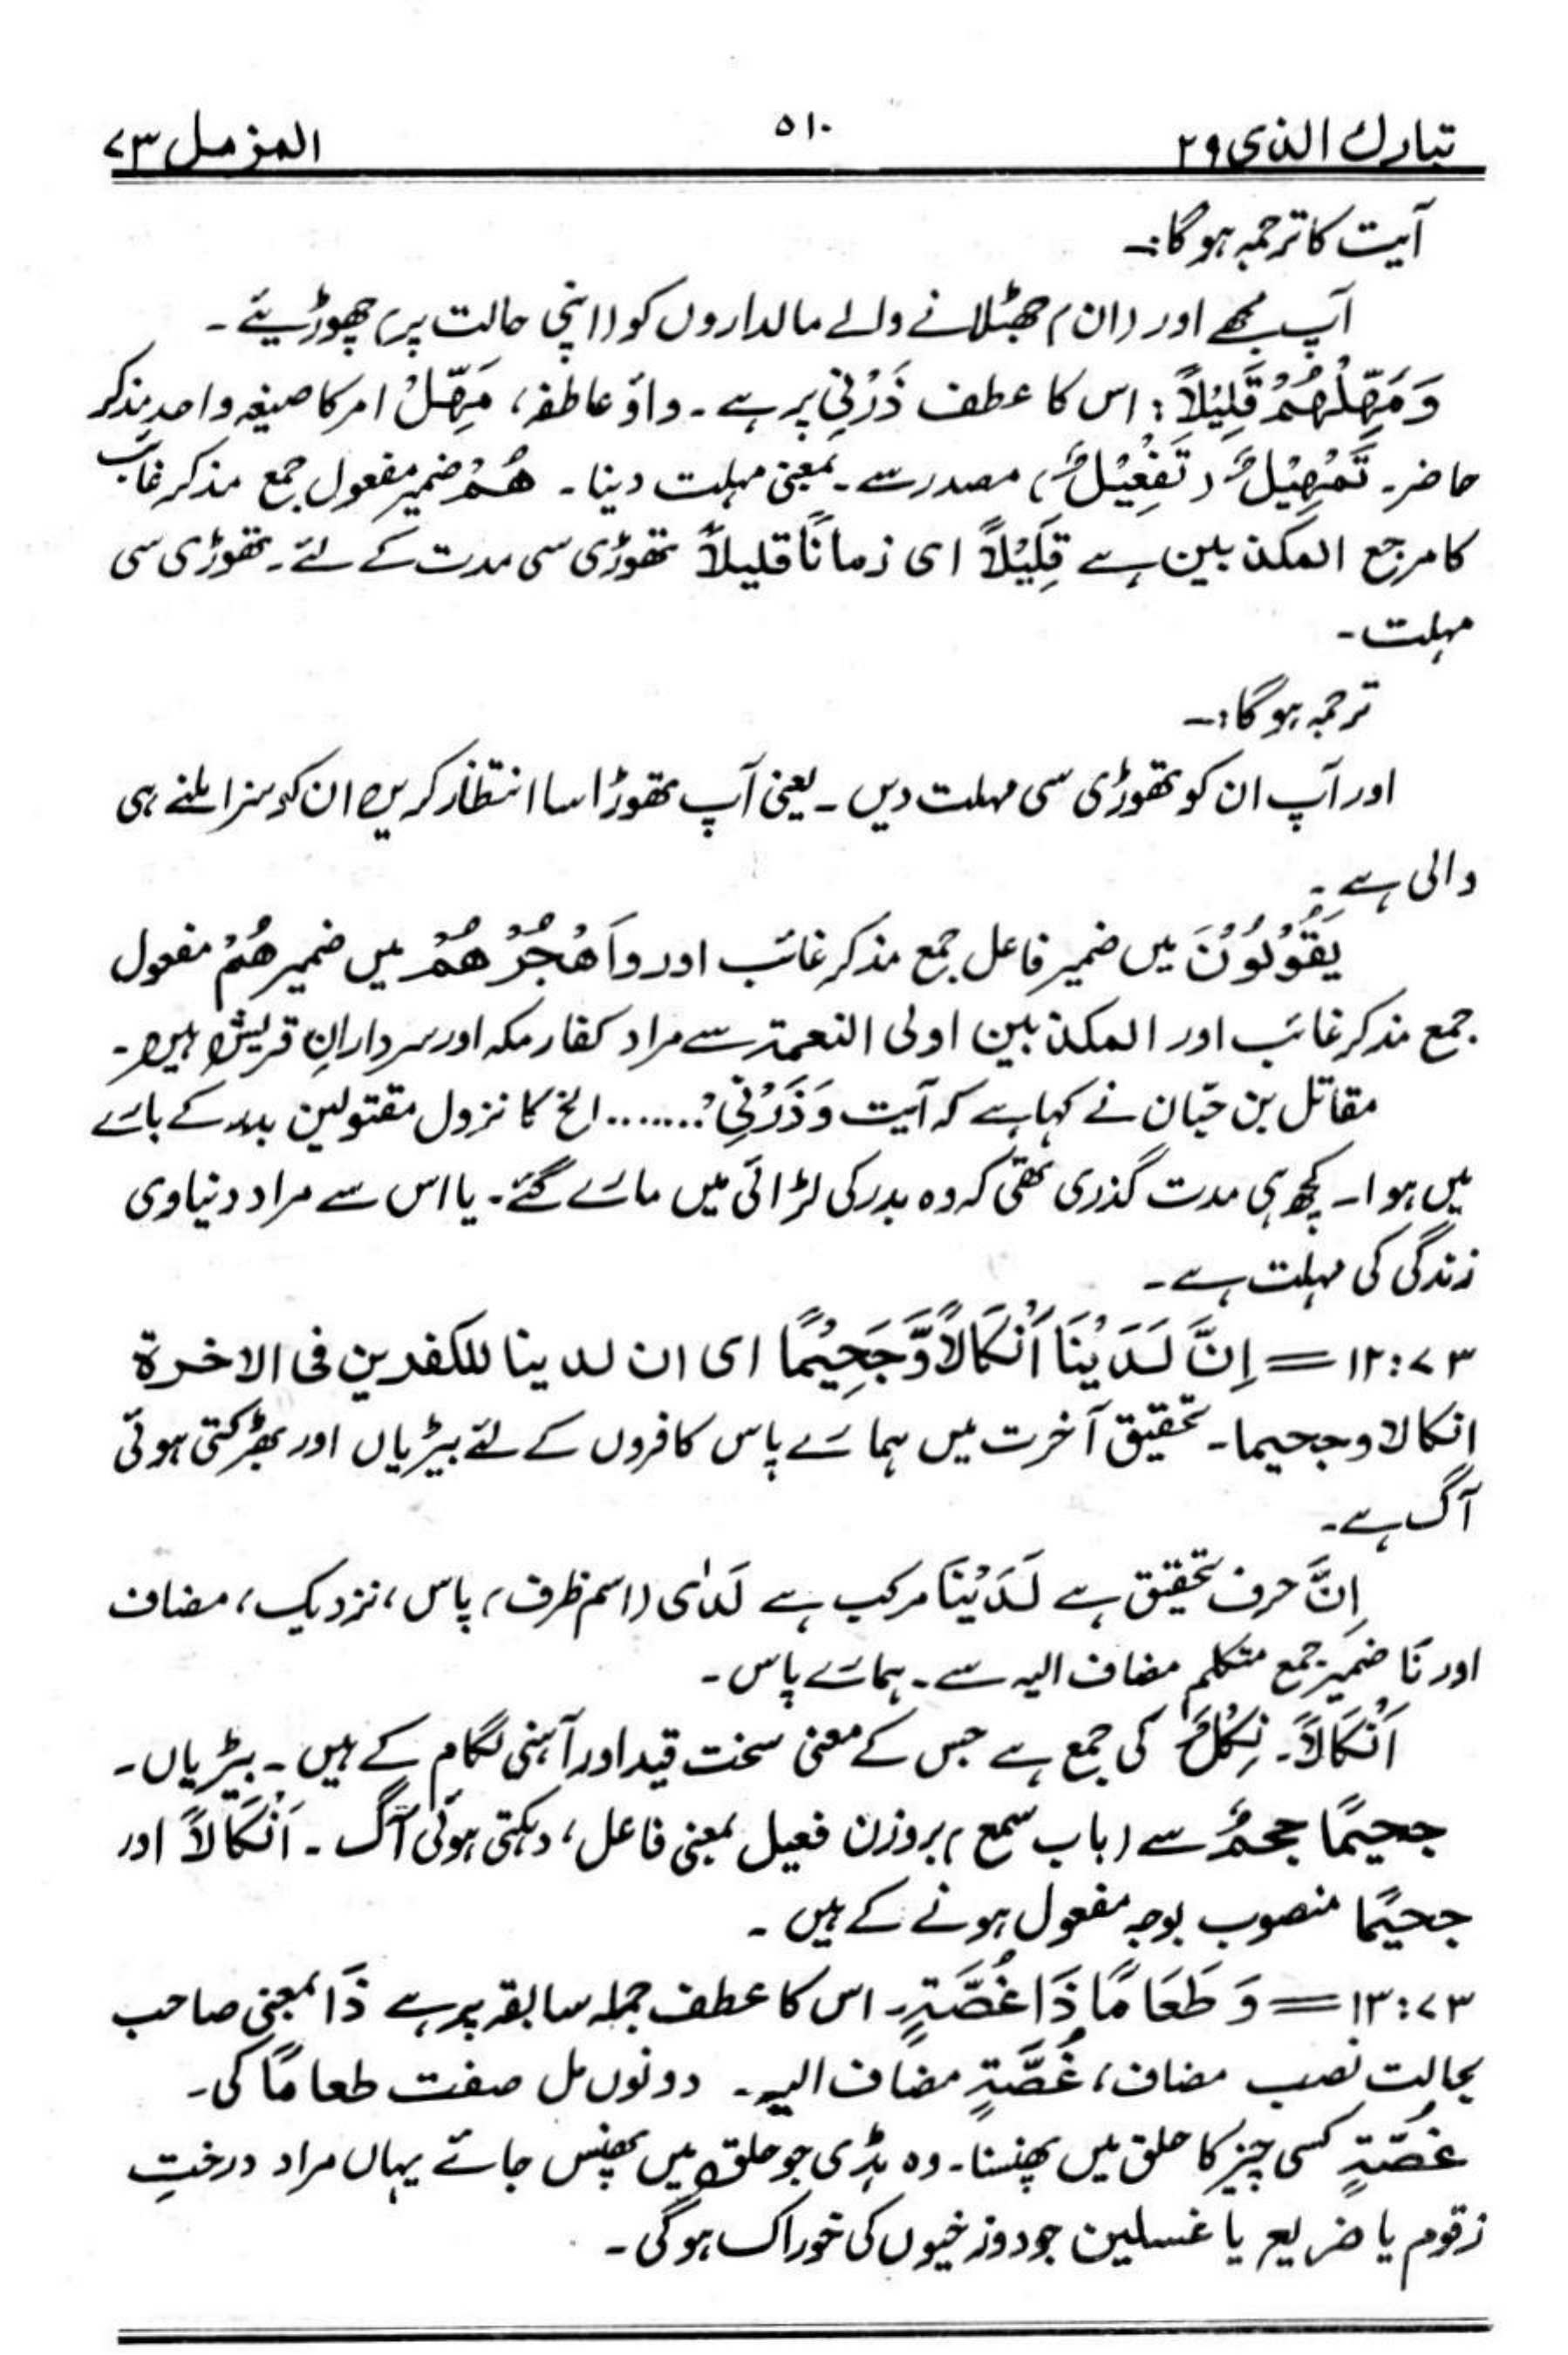 تبارك الذی ۲۹
۵۱۰
المزمل ۷۳
آیت کا ترجمہ ہوگا:۔
آپ مجھے اور (ان) جھٹلانے والے مالداروں کو (اپنی حالت پر) چھوڑیئے ۔
وَمَهِّلْهُمْ قَلِیْلاً: اس کا عطف ذَرْنِیْ پر ہے ۔ واؤ عاطفہ، مَهِّلْ امر کا صیغہ واحد مذکر
حاضر۔ تَمْهِیْلٌ (تَفْعِیْلٌ) مصدر سے ۔ بمعنی مہلت دینا ۔ هُمْ ضمیر مفعول جمع مذکر غائب
کا مرجع المکذبین ہے قَلِیْلاً ای زمانًا قلیلاً تھوڑی سی مدت کے لئے ۔ تھوڑی سی
مہلت ۔
ترجمہ ہوگا:۔
اور آپ ان کو تھوڑی سی مہلت دیں ۔ یعنی آپ تھوڑا سا انتظار کریں ان کو سزا ملنے ہی
والی ہے ۔
یَقُوْلُوْنَ میں ضمیر فاعل جمع مذکر غائب اور وَاهْجُرْهُمْ میں ضمیر هُمْ مفعول
جمع مذکر غائب اور المکذبین اولی النعمة سے مراد کفار مکہ اور سردارانِ قریش ہیں ۔
مقاتل بن حبّان نے کہا ہے کہ آیت وَذَرْنِیْ ....... الخ کا نزول مقتولین بدر کے بارے
میں ہوا ۔ کچھ ہی مدت گذری تھی کہ وہ بدر کی لڑائی میں مارے گئے ۔ یا اس سے مراد دنیاوی
زندگی کی مہلت ہے ۔
۷۳: ۱۲ = اِنَّ لَدَیْنَا اَنْکَالاً وَّجَحِیْمًا ای ان لدینا للکفرین فی الاخرة
انکالا وجحیما ۔ تحقیق آخرت میں ہمارے پاس کافروں کے لئے بیڑیاں اور بھڑکتی ہوئی
آگ ہے ۔
اِنَّ حرف تحقیق ہے لَدَیْنَا مرکب ہے لَدٰی (اسم ظرف) پاس، نزدیک، مضاف
اور نَا ضمیر جمع متکلم مضاف الیہ سے ۔ ہمارے پاس ۔
اَنْکَالاً ۔ نِکْلٌ کی جمع ہے جس کے معنی سخت قید اور آہنی لگام کے ہیں ۔ بیڑیاں ۔
جحیمًا جحمٌ سے (باب سمع) بروزن فعیل بمعنی فاعل، دہکتی ہوئی آگ ۔ اَنْکَالاً اور
جحیمًا منصوب بوجہ مفعول ہونے کے ہیں ۔
۷۳: ۱۳ = وَ طَعَامًا ذَا غُصَّةٍ ۔ اس کا عطف جملہ سابقہ پر ہے ذَا بمعنی صاحب
بحالت نصب مضاف، غُصَّةٍ مضاف الیہ ۔ دونوں مل صفت طعامًا کی ۔
غُصَّةٍ کسی چیز کا حلق میں پھنسنا ۔ وہ ہڈی جو حلق میں پھنس جائے یہاں مراد درختِ
زقوم یا ضریع یا غسلین جو دوزخیوں کی خوراک ہوگی ۔